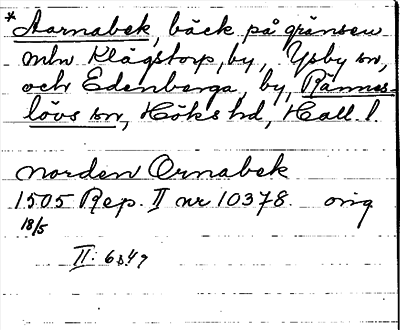 * Aarnabek, bäck på gränsen
mln Klägstorp, by, Ysby sn,
och Edenberga, by, Rännes-
lövs sn, Höks hd, Hall. l.
norden Ornabek
1505 Rep. II nr 10378. orig
18/5
II: 6